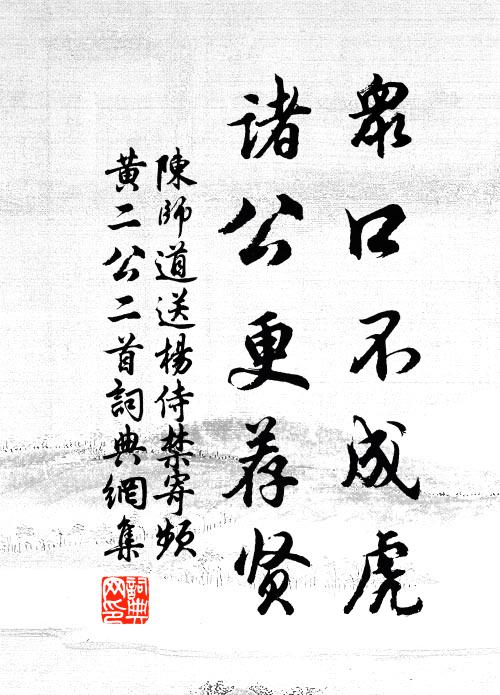 眾口不成虎
諸公更荐贤
陳師道送楊侍禁寄頻
黃二公二首詞典網集
詞典網印